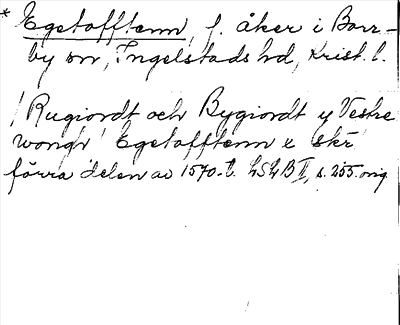 * Egetofftenn, f. åker i Borr-
by sn, Ingelstads hd, Krist. l.
/Rugiordt och Bygiordt y Vestre
wongh/ Egetofftenn x skr
förra delen av 1570-t. LSLB II, s. 255. orig